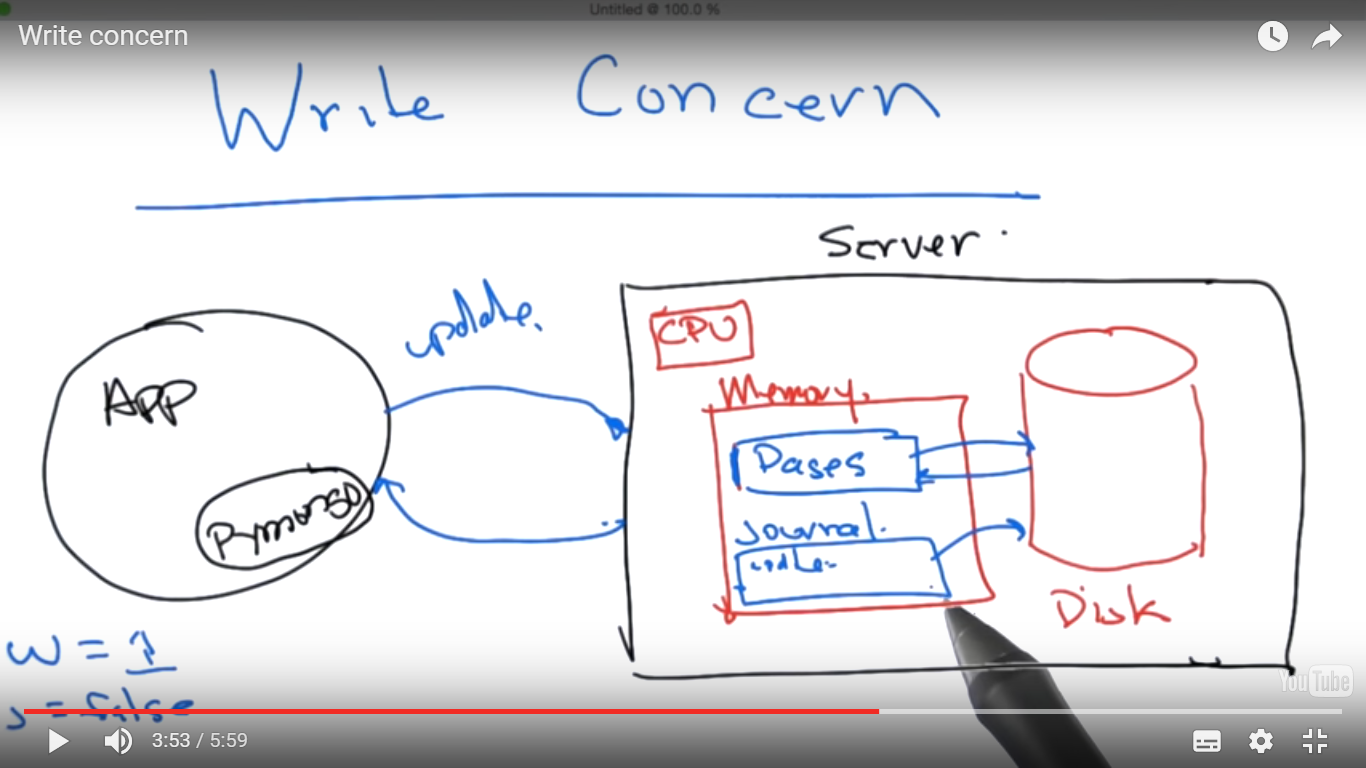 Untitled @ 100.0 %
Write concern
Write Concern
Server
update.
CPU
Memory.
APP
Pages
Pymongo
Journal.
update
Disk
w = 1
j = false
YouTube
3:53 / 5:59